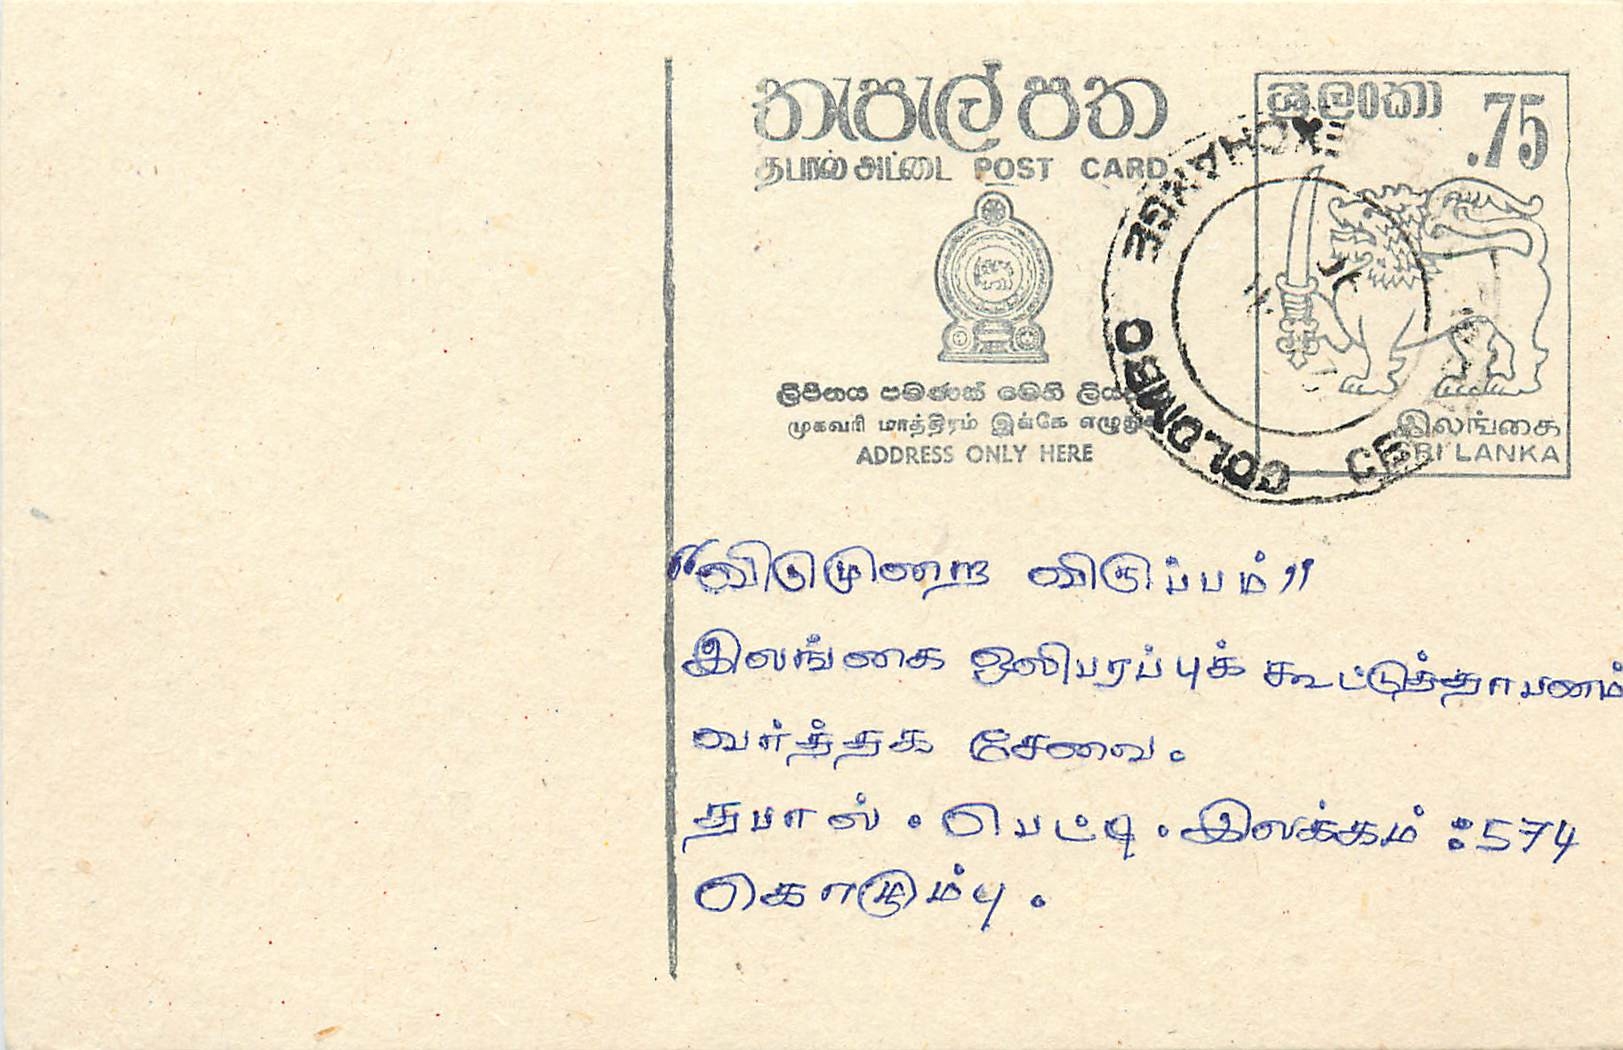 තැපැල් පත
தபால் அட்டை POST CARD
ශ්‍රී ලංකා
.75
ලිපිනය පමණක් මෙහි
முகவரி மாத்திரம் இங்கே
ADDRESS ONLY HERE
இலங்கை
SRI LANKA
COLOMBO EXCHANGE
"விடுமுறை விருப்பம்"
இலங்கை ஒலிபரப்புக் கூட்டுத்தாபணம்
வர்த்தக சேவை.
தபால். பெட்டி. இலக்கம் : 574
கொழும்பு.